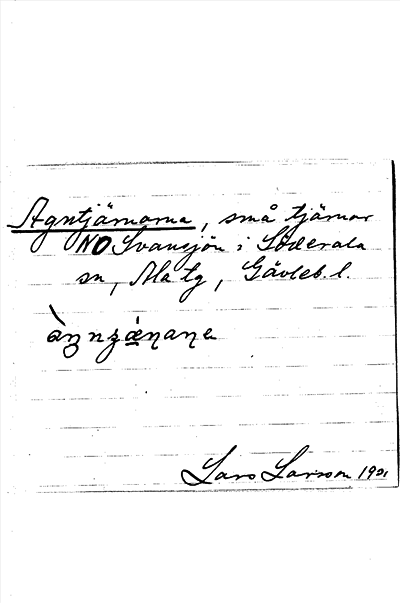 Agntjärnarna, små tjärnar
NO Svansjön i Söderala
sn, Ala tg, Gävleb. l.
Lars Larsson 1921